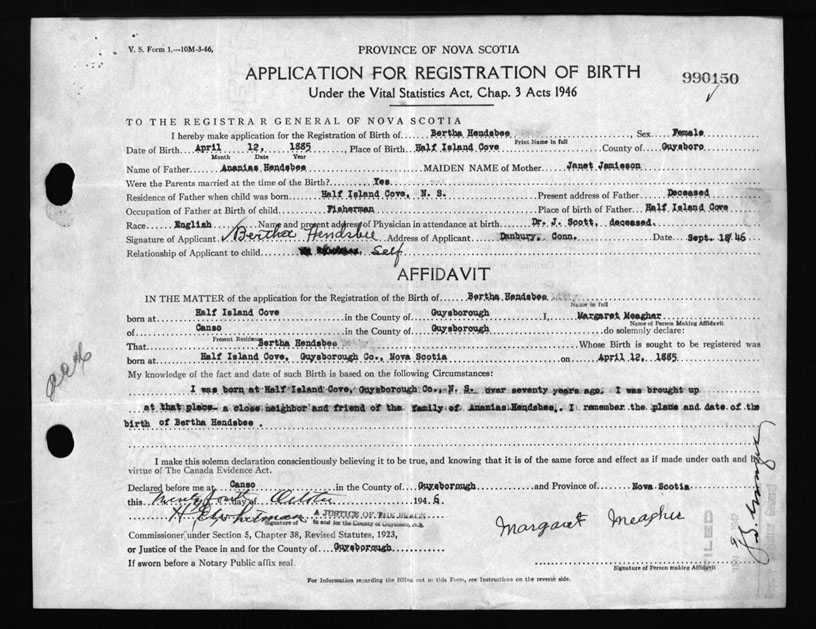 V. S. Form 1.—10M-3-46,
PROVINCE OF NOVA SCOTIA
APPLICATION FOR REGISTRATION OF BIRTH
990150
Under the Vital Statistics Act, Chap. 3 Acts 1946
TO THE REGISTRAR GENERAL OF NOVA SCOTIA
I hereby make application for the Registration of Birth of Bertha Hendsbee, Sex Female
Print Name in full
Date of Birth April 12, 1885, Place of Birth Half Island Cove County of Guysboro
Month Date Year
Name of Father Ananias Hendsbee MAIDEN NAME of Mother Janet Jamieson
Were the Parents married at the time of the Birth? Yes
Residence of Father when child was born Half Island Cove, N. S. Present address of Father Deceased
Occupation of Father at Birth of child Fisherman Place of birth of Father Half Island Cove
Race English Name and present address of Physician in attendance at birth Dr. J. Scott, deceased.
Signature of Applicant Bertha Hendsbee Address of Applicant Danbury, Conn. Date Sept. 18/46
Relationship of Applicant to child Self
AFFIDAVIT
IN THE MATTER of the application for the Registration of the Birth of Bertha Hendsbee
Name in full
born at Half Island Cove in the County of Guysborough I, Margaret Meaghar
Name of Person Making Affidavit
of Canso in the County of Guysborough do solemnly declare:
Present Residence
That Bertha Hendsbee Whose Birth is sought to be registered was
born at Half Island Cove, Guysborough Co., Nova Scotia on April 12, 1885.
My knowledge of the fact and date of such Birth is based on the following Circumstances:
I was born at Half Island Cove, Guysborough Co., N. S. over seventy years ago. I was brought up
at that place- a close neighbor and friend of the family of Ananias Hendsbee,. I remember the place and date of the
birth of Bertha Hendsbee .
I make this solemn declaration conscientiously believing it to be true, and knowing that it is of the same force and effect as if made under oath and by
virtue of The Canada Evidence Act.
Declared before me at Canso in the County of Guysborough and Province of Nova Scotia
this Twenty fourth day of October 1946
A JUSTICE OF THE PEACE
Signature of in and for the County of Guysboro, N.S.
Margaret Meagher
Commissioner under Section 5, Chapter 38, Revised Statutes, 1923,
or Justice of the Peace in and for the County of Guysborough
If sworn before a Notary Public affix seal.
Signature of Person making Affidavit
For Information regarding the filling out of this Form, see Instructions on the reverse side.